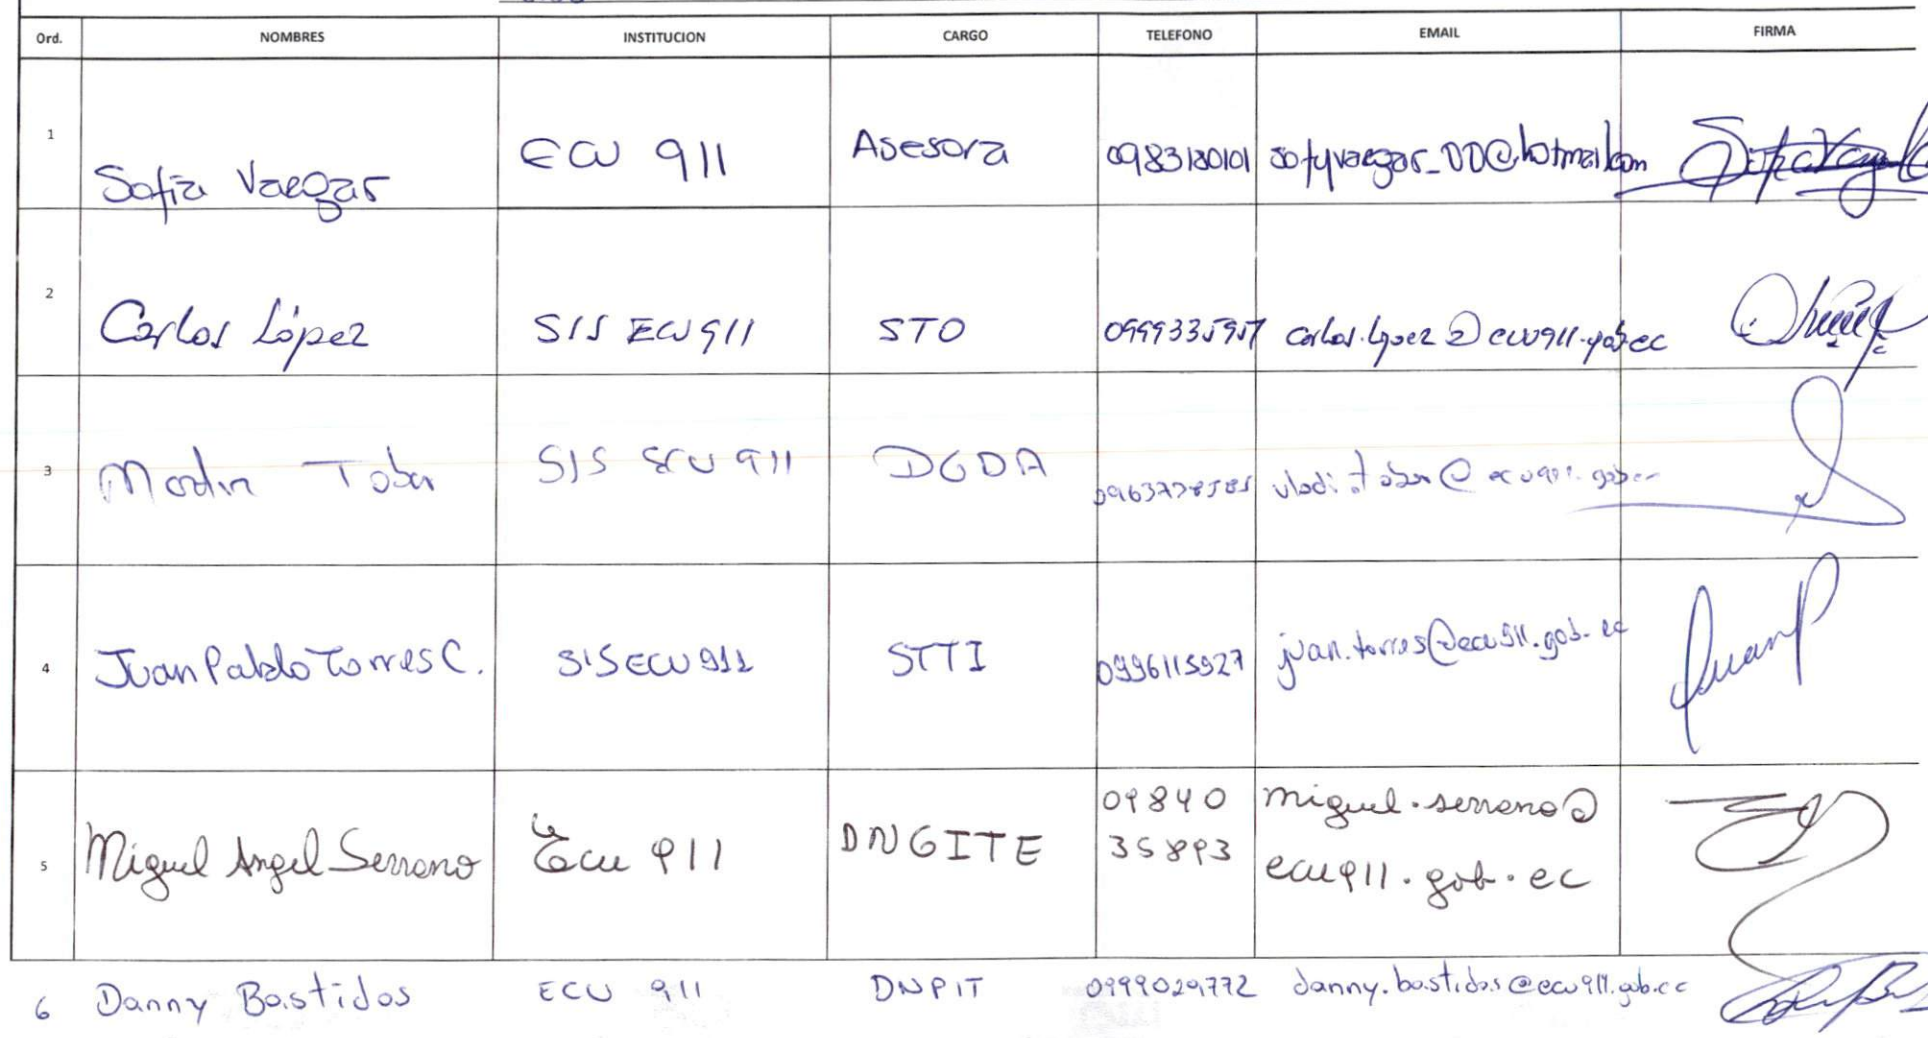 Ord. NOMBRES INSTITUCION CARGO TELEFONO EMAIL FIRMA
1 Sofia Vaegar ECU 911 Asesora 0983180101 sofyvaegar_00@hotmail.com
2 Carlos López SIS ECU911 STO 0999335957 carlos.lopez@ecu911.gob.ec
3 Tobar SIS ECU 911 DGDA
4 Juan Pablo Torres C. SIS ECU 911 STTI 0996115927 juan.torres@ecu911.gob.ec
5 Miguel Angel Serrano Ecu 911 DNGITE 09840 miguel.serrano@
35893 ecu911.gob.ec
6 Danny Bastidas ECU 911 DNPIT 0999029772 danny.bastidas@ecu911.gob.ec